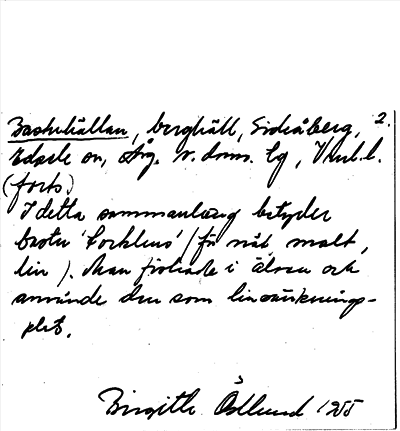 Bastuhällan, berghäll, Sidsåberg, 2.
Edsele sn, Ång. v. doms. lg, Vnl. l.
(forts)
I detta sammanhang betyder
bastu 'torkhus' (för nät, malt,
lin). Man fiskade i älven och
använde den som linorkning-
plats.
Birgitta Östlund 1955